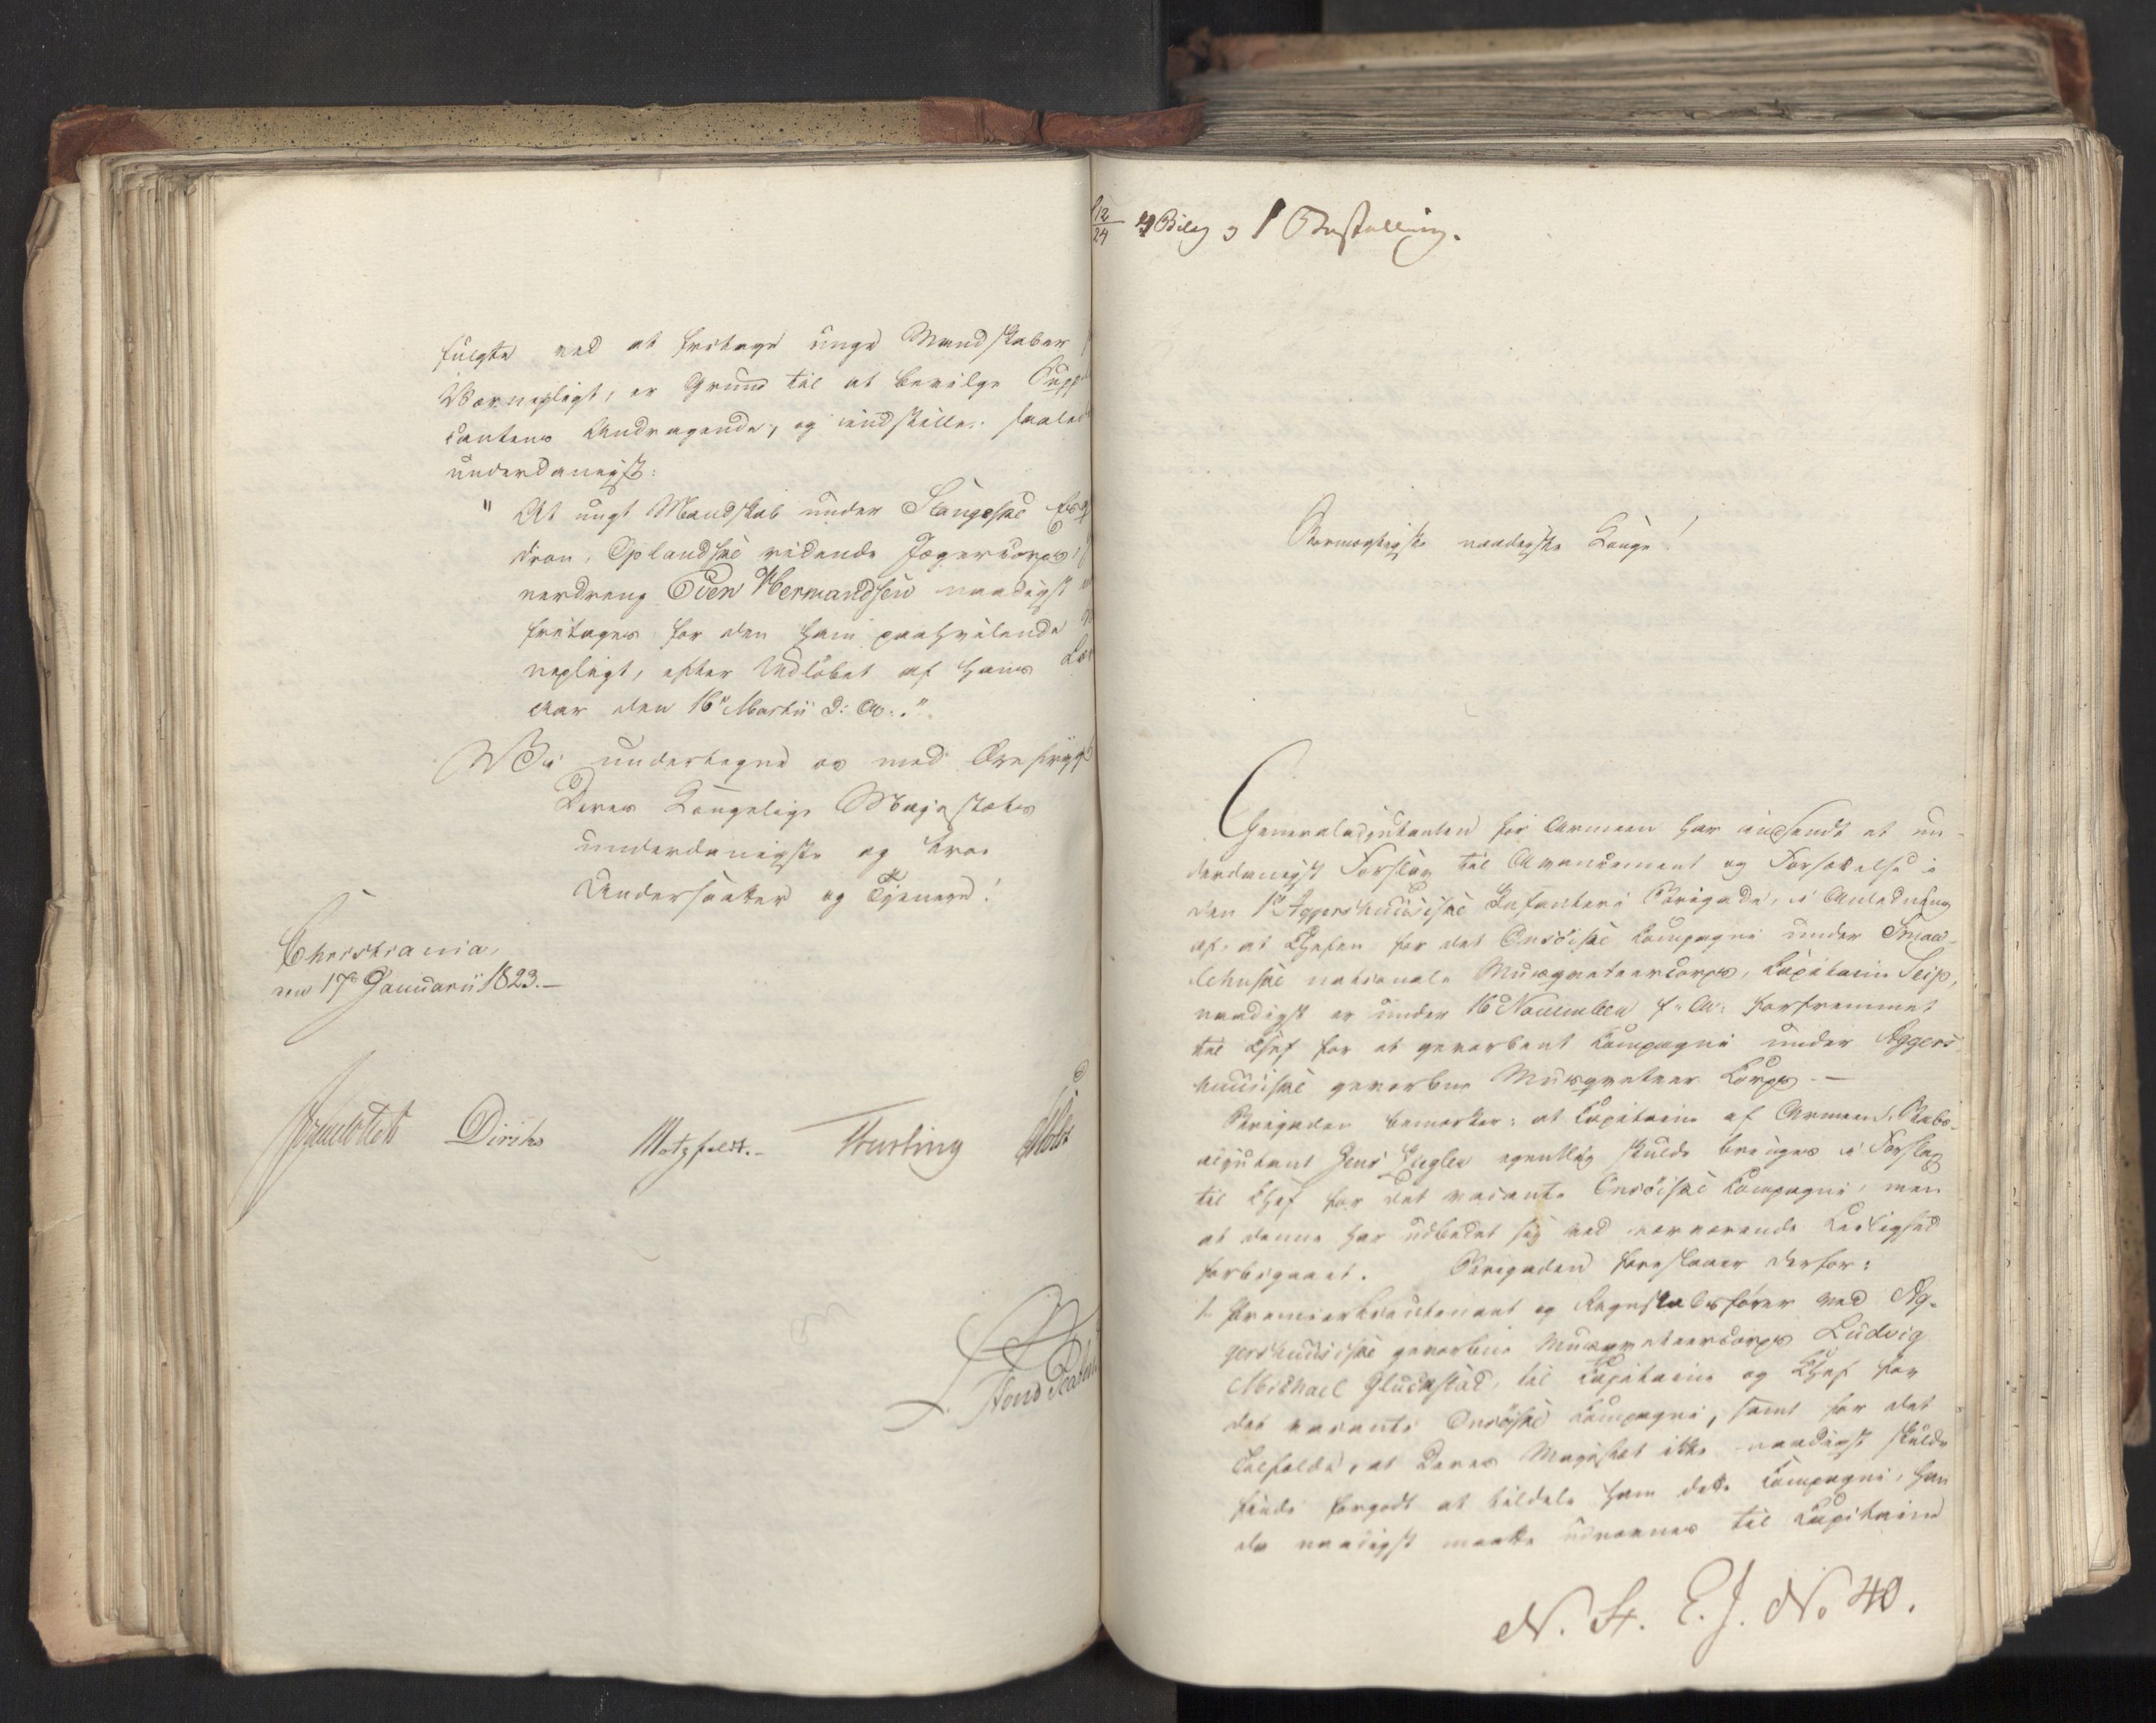 fulgte ved at fritage unge Mandskaber
Værnepligt, er Grund til at bevilge Supp
cantens Andragende, og indstiller saaled
underdanigst:
" At ungt Mandskab under Stangeske Esq
dron, Oplandske ridende Jægercorps,
verdreng Even Hermandsen naadigst
fritages for den ham paahvilende
nepligt, efter Udløbet af hans Lær
Aar den 16de Martii d: A:."
Vi undertegne os med Ærefrygt
Deres Kongelige Majestæts
underdanigste og troe
Undersaatter og Tjenere!
Christiania,
den 17de Januarii 1823.—
Diriks Motzfeldt.— Holst
12/24 4 Bilag og 1 Bestalling.
Stormægtigste naadigste Konge!
Generaladjutanten for Armeen har indsendt et un-
derdanigst Forslag til Avancement og Forsættelse i
den 1ste Aggershuusiske Infanteri Brigade, i Anledning
af, at Chefen for det Onsøiske Compagni under Smaa-
lehnske nationale Musqveteercorps, Capitain Seip,
naadigst er under 16 November f: A: forfremmet
til Chef for et gevorbent Compagni under Aggers-
huusiske gevorbne Musqveteer Corps.—
Brigaden bemærker: at Capitain af Armeen, Stabs-
adjutant Jens Ziegler egentlig skulde bringes i Forslag
til Chef for det vacante Onsøiske Compagni, men
at denne har udbedet sig ved nærværende Leilighed
forbigaaet. Brigaden foreslaaer derfor:
1. Premierlieutenant og Regnskabsfører ved Ag-
gershuusiske gevorbne Musqveteercorps Ludvig
Michael Gluckstad, til Capitain og Chef for
det vacante Onsøiske Compagni, samt for det
Tilfælde, at Deres Majestæt ikke naadigst skulde
finde forgodt at tildele ham dette Compagni, han
da naadigst maatte udnævnes til Capitain
N. St. E. J. No 40.